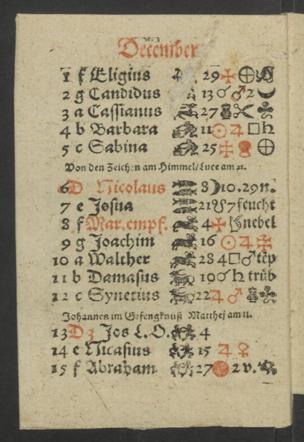 December
1 f Eligius 29
2 g Candidus 13 ☌ ♂ 2 ☾
3 a Cassianus 27
4 b Barbara 11 ☉ ♃ □ ♄
5 c Sabina 25
Von den Zeichen am Himmel/ Luce am 21.
6 D Nicolaus 8 ☽ 10.29n.
7 e Josua 21 feucht
8 f Mar.empf. 4 nebel
9 g Joachim 16 ☉ ♃
10 a Walther 28 4 □ ♂
11 b Damasus 10 ☌ ♄ trüb
12 c Synerius 22 ♃ ♂
Johannes im Gefengknuß Matthei am 11.
13 D 3 Jos L.O. 4
14 e Nicasius 15 ♃ ♀
15 f Abraham 27 2 v.